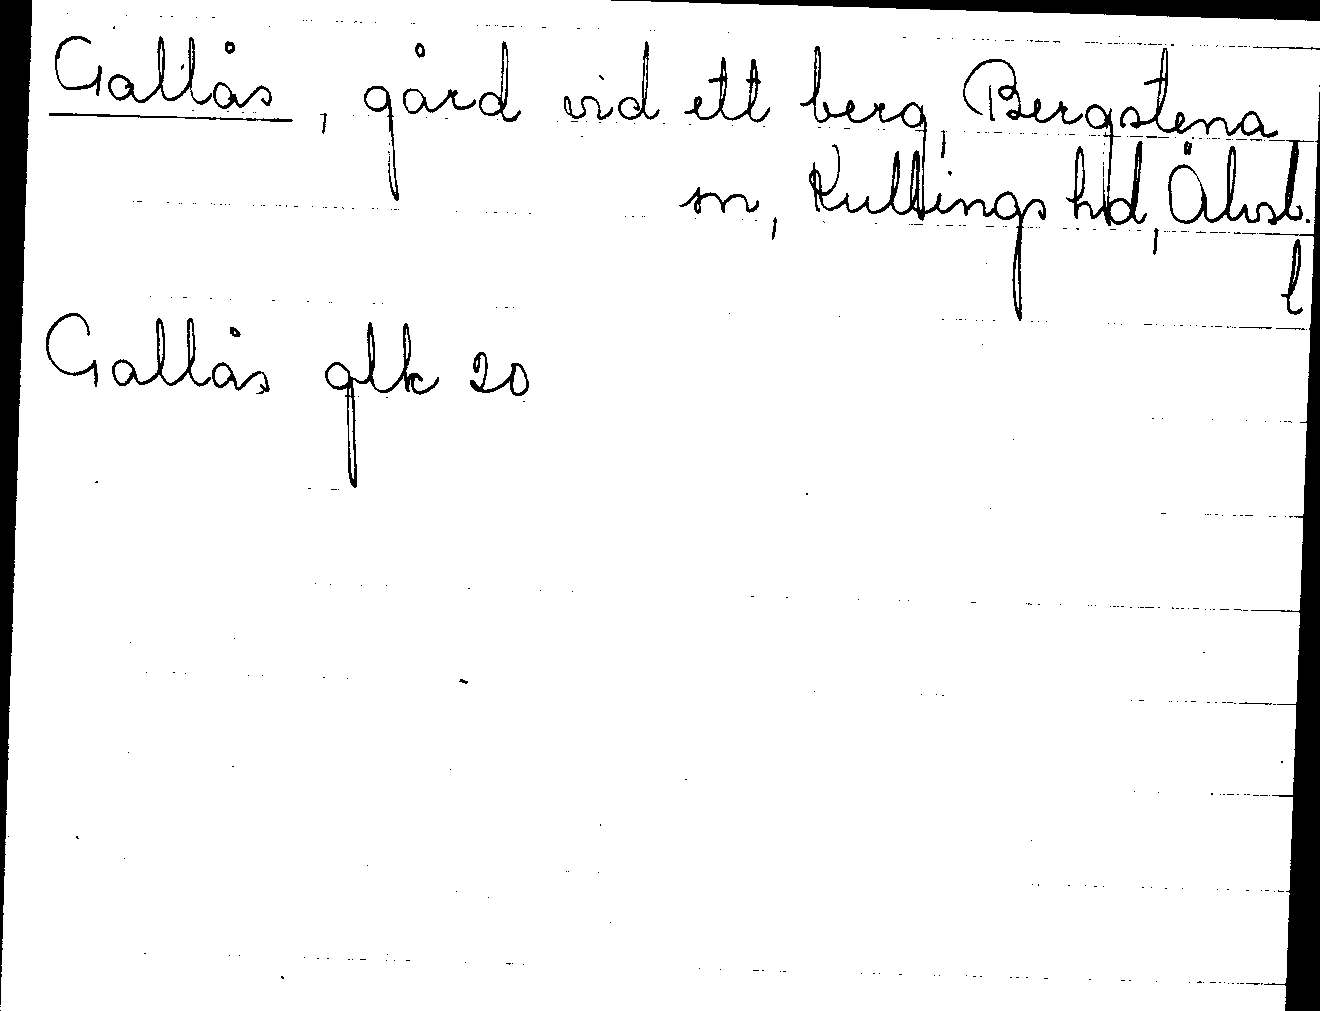 Gallås, gård vid ett berg, Bergstena
sn, Kullings hd, Älvsb.
l
Gallås glk 20